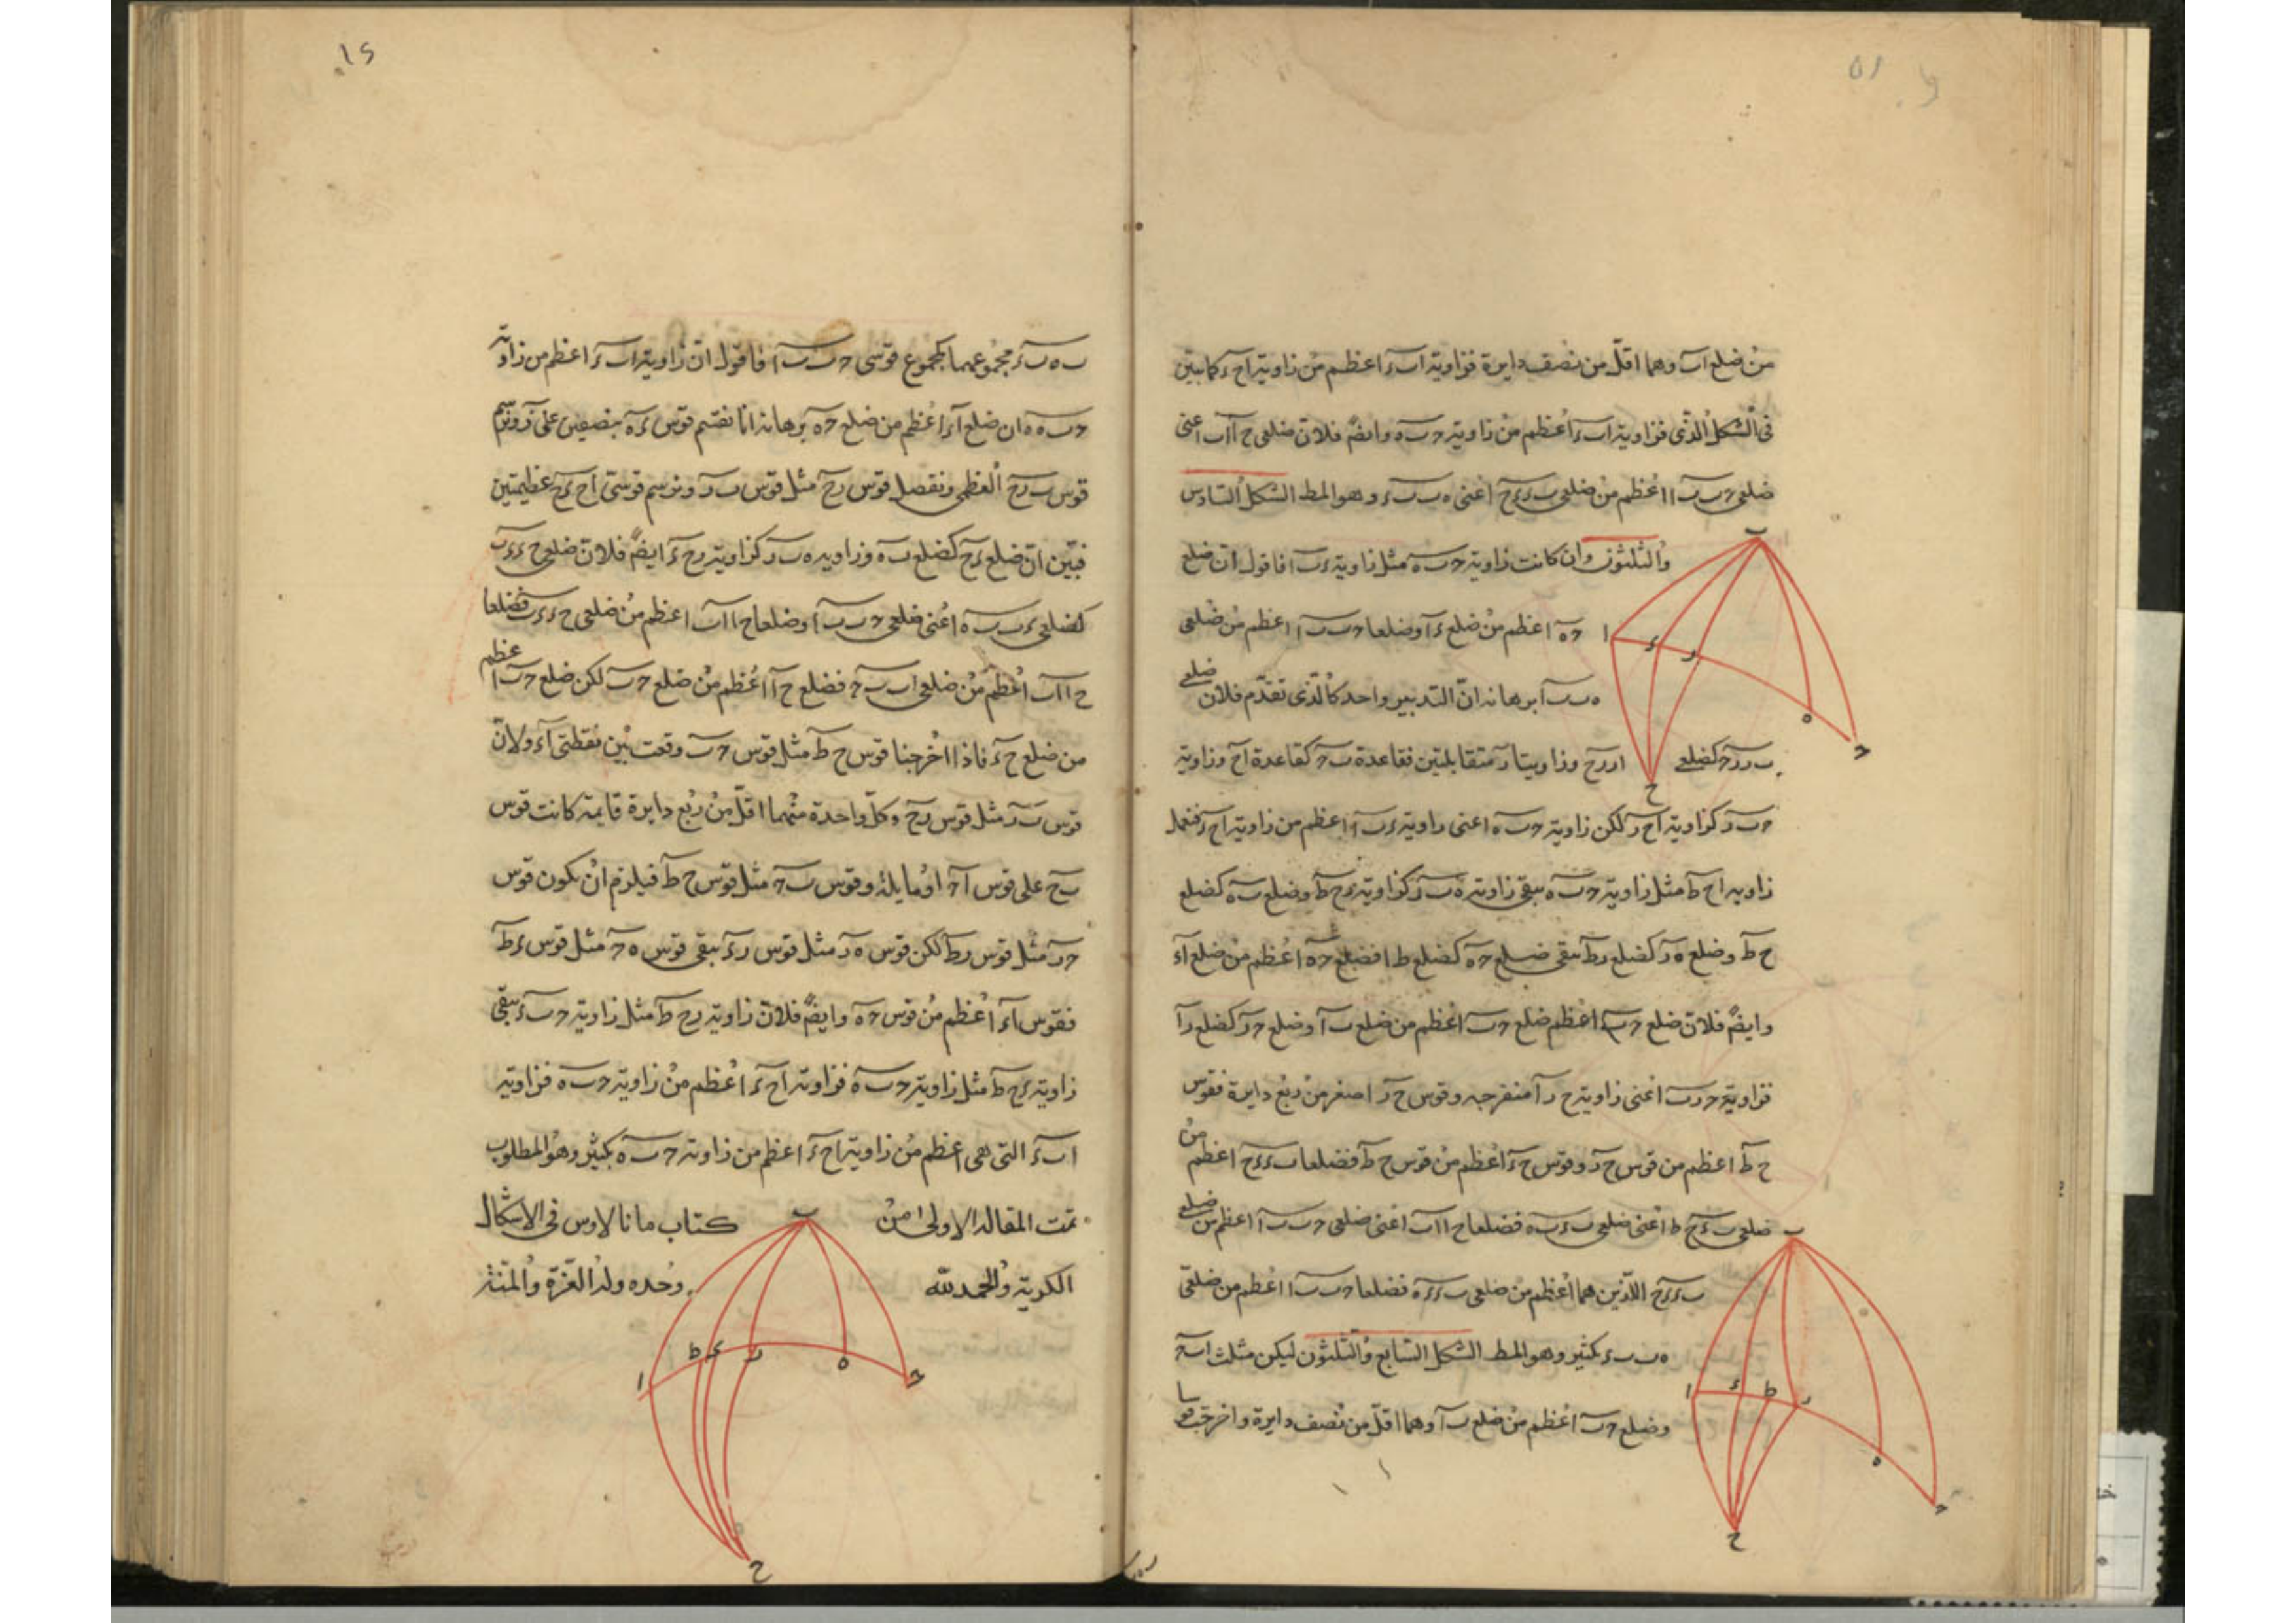 من ضلع اٮ وهما اقلّ من نصف دايرة فزاوية اٮ ء اعظم من زاوية اح ء كما بيّن
فى الشكل الذى فزاوية اٮ ء اعظم من زاوية حٮ ه وايضً فلان ضلعى ح ا اٮ اعنى
ضلعى حٮ ٮ ا اعظم من ضلعى ٮ ء ء ح اعنى ه ٮ ٮ ء وهو المط الشكل السادس
والثلثون وان كانت زاوية حٮ ه مثل زاوية ء ٮ ا فاقول انّ ضلع
ح ه اعظم من ضلع ء ا وضلعا حٮ ٮ ا اعظم من ضلعى
ه ٮ ٮ ا برهانه انّ التدبير واحد كالذى تقدّم فلان ضلعى
ٮ ر ر ح كضلعى ا ر ر ح وزاويتا ر متقابلتين فقاعدة ٮ ح كقاعدة اح وزاوية
حٮ ر كزاوية اح ر لكن زاوية حٮ ه اعنى زاوية ء ٮ ا اعظم من زاوية اح ر فنعمل
زاوية اح ط مثل زاوية حٮ ه يبقى زاوية ه ٮ ر كزاوية ر ح ط وضلع ٮ ه كضلع
ح ط وضلع ه ر كضلع ر ط يبقى ضلع ح ه كضلع ط ا فضلع ح ه اعظم من ضلع ا ء
وايضً فلان ضلع حٮ اعظم ضلع حٮ اعظم من ضلع ٮ ا وضلع ح ر كضلع ر ا
فزاوية ح ر ٮ اعنى زاوية ح ر ا منفرجه وقوس ح ر اصغر من ربع دايرة فقوس
ح ط اعظم من قوس ح ر وقوس ح ء اعظم من قوس ح ط فضلعا ٮ ء ء ح اعظم من
ضلعى ٮ ء ح ط اعنى ضلعى ٮ ء ٮ ه فضلعا ح ا اٮ اعنى ضلعى حٮ ٮ ا اعظم من ضلعى
ٮ ء ء ح اللذين هما اعظم من ضلعى ٮ ء ء ه فضلعا حٮ ٮ ا اعظم من ضلعى
ه ٮ ٮ ء بكثير وهو المط الشكل السابع والثلثون ليكن مثلث اٮ ح
وضلع حٮ اعظم من ضلع ٮ ا وهما اقلّ من نصف دايرة واخرجت قوسا
ٮ ه ٮ ء مجموعهما كمجموع قوسى حٮ ٮ ا فاقول انّ زاوية اٮ ء اعظم من زاوية
حٮ ه وان ضلع ا ء اعظم من ضلع ح ه برهانه انا نقسم قوس ء ه بنصفين على ر ونتمّم
قوس ٮ ر ح العظمى ونفصل قوس ر ح مثل قوس ٮ ر ونرسم قوسى اح ء ح عظيمتين
فبيّن انّ ضلع ء ح كضلع ٮ ه وزاويه ه ٮ ر كزاوية ر ح ء ايضً فلان ضلعى ح ء ء ٮ
كضلعى ء ٮ ٮ ه اعنى ضلعى حٮ ٮ ا وضلعا ح ا اٮ اعظم من ضلعى ح ء ء ٮ فضلعا
ح ا اٮ اعظم من ضلعى اٮ ٮ ح فضلع ح ا اعظم من ضلع حٮ لكن ضلع حٮ اعظم
من ضلع ح ء فاذا اخرجنا قوس ح ط مثل قوس حٮ وقعت بين نقطتى ا ء ولان
قوس ٮ ر مثل قوس ر ح وكلّ واحدة منهما اقلّ من ربع دايرة قايمة كانت قوس
ٮ ح على قوس ا ح او مايلة وقوس ٮ ح مثل قوس ح ط فيلزم ان يكون قوس
ح ر مثل قوس ر ط لكن قوس ه ر مثل قوس ر ء يبقى قوس ه ح مثل قوس ء ط
فقوس ا ء اعظم من قوس ح ه وايضً فلان زاوية ر ح ط مثل زاوية حٮ ء يبقى
زاوية ء ح ط مثل زاوية حٮ ه فزاوية اح ء اعظم من زاوية حٮ ه فزاوية
اٮ ء التى هى اعظم من زاوية اح ء اعظم من زاوية حٮ ه بكثير وهو المطلوب
تمت المقالة الاولى من كتاب مانالاوس فى الاشكال
الكرية والحمد لله وحده وله العزّة والمنّة